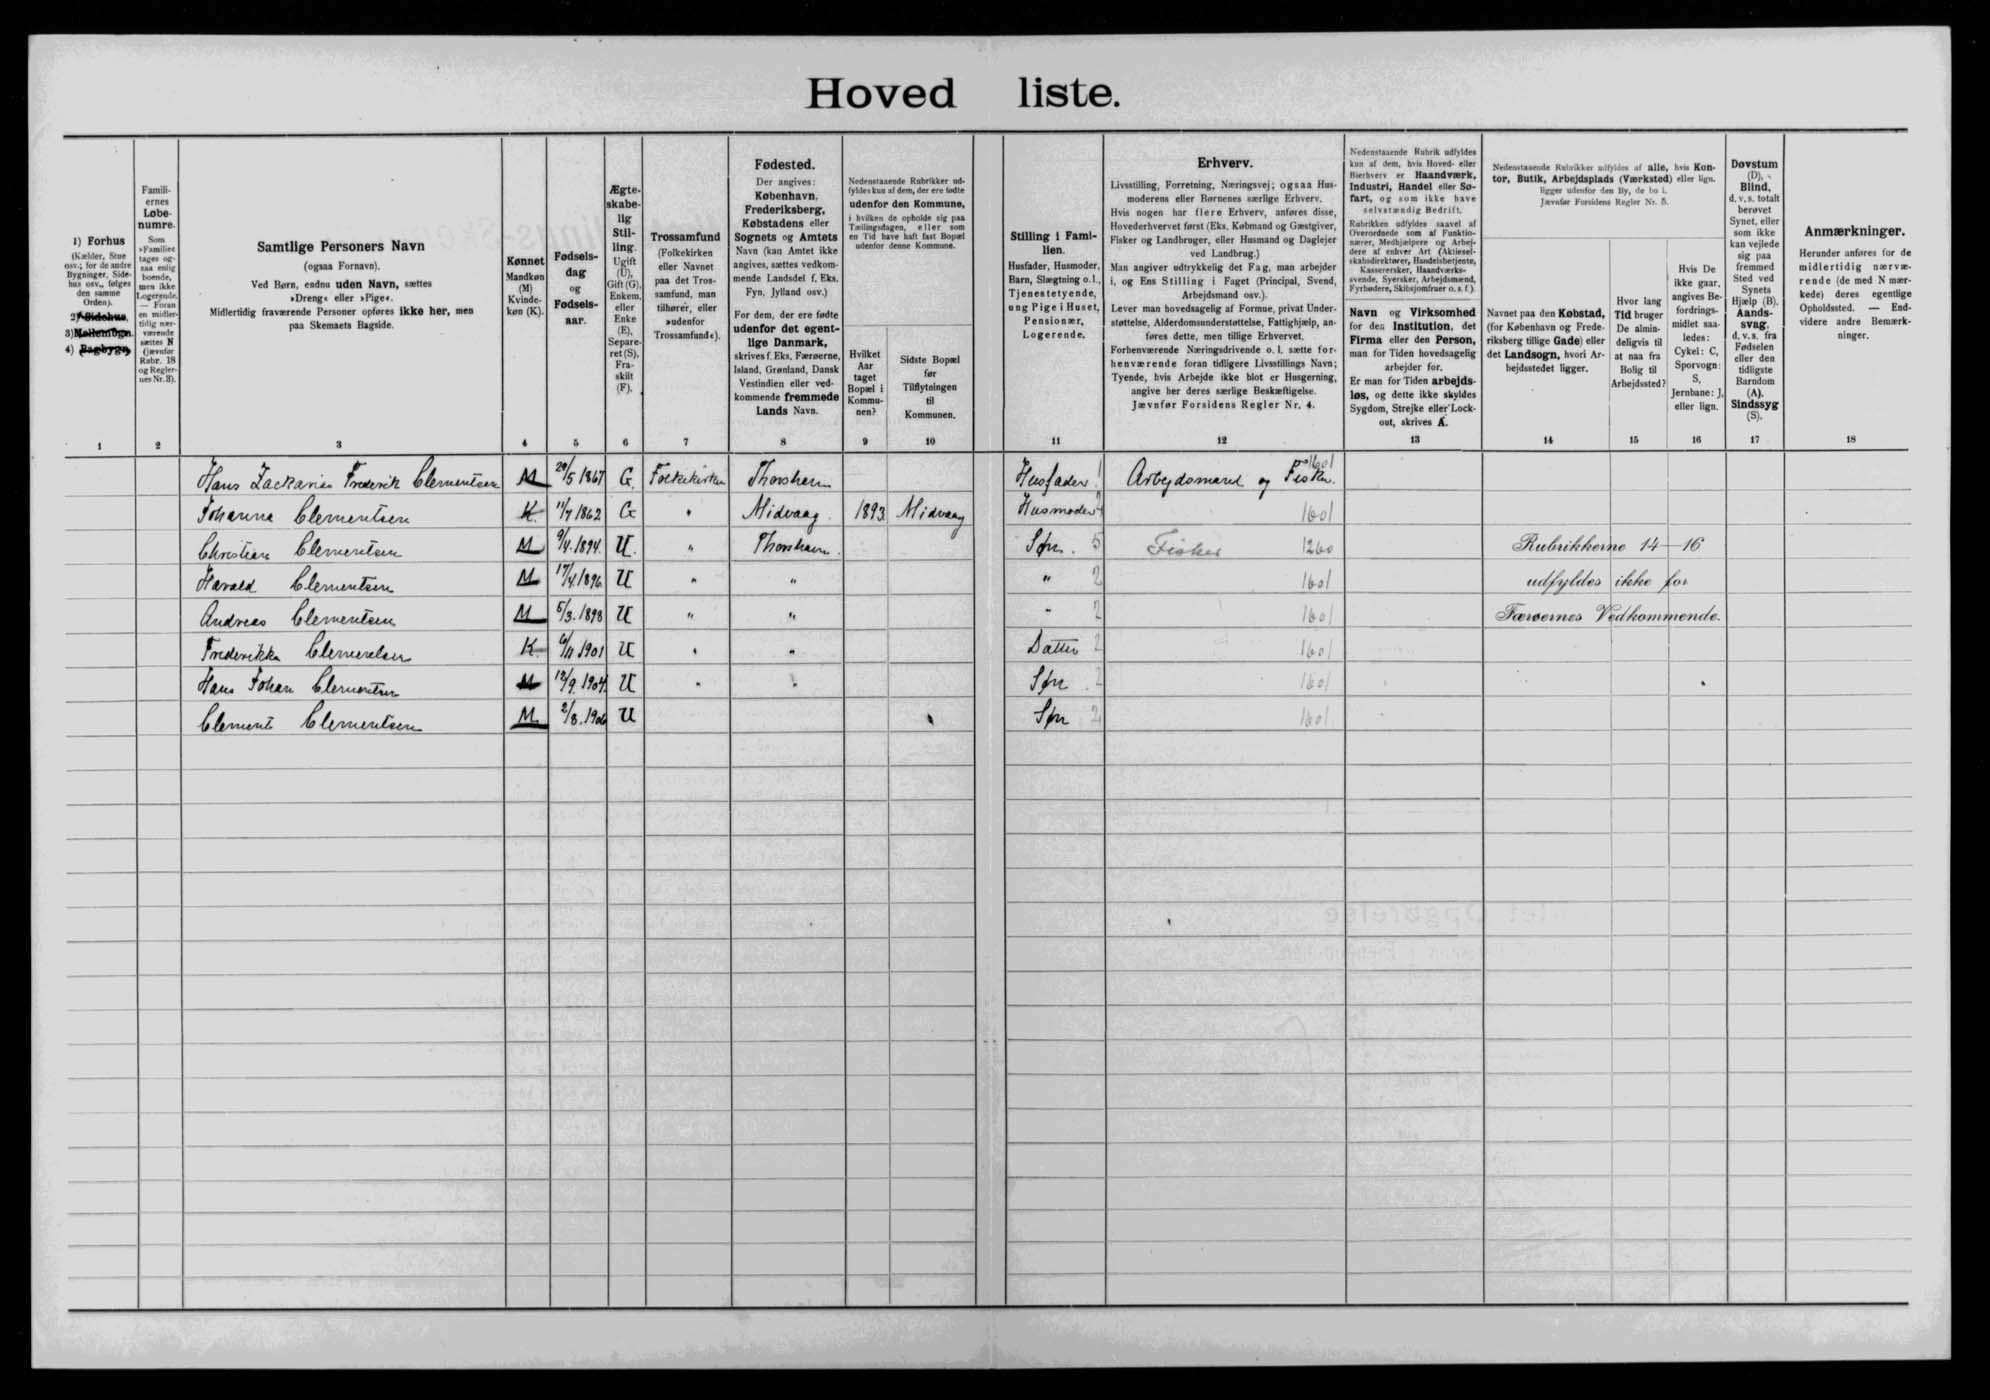 Hoved liste.
1) Forhus
(Kælder, Stue
osv.; for de andre
Bygninger, Side-
hus osv., følges
den samme
Orden).
2) Sidehus,
3) Mellembgn.
4) Bagbygn.
1
Famili-
ernes
Løbe-
numre.
Som
»Familie«
tages og-
saa enlig
boende,
men ikke
Logerende.
— Foran
en midler-
tidig nær-
værende
sættes N
(jævnfør
Rubr. 18
og Regler-
nes Nr. 3).
2
Samtlige Personers Navn
(ogsaa Fornavn).
Ved Børn, endnu uden Navn, sættes
»Dreng« eller »Pige«.
Midlertidig fraværende Personer opføres ikke her, men
paa Skemaets Bagside.
3
Kønnet
Mandkøn
(M)
Kvinde-
køn (K).
4
Fødsels-
dag
og
Fødsels-
aar.
5
Ægte-
skabe-
lig
Stil-
ling.
Ugift
(U),
Gift (G),
Enkem.
eller
Enke
(E),
Separe-
ret (S),
Fra-
skilt
(F).
6
Trossamfund
(Folkekirken
eller Navnet
paa det Tros-
samfund, man
tilhører, eller
»udenfor
Trossamfund«).
7
Fødested.
Der angives:
København,
Frederiksberg,
Købstadens eller
Sognets og Amtets
Navn (kan Amtet ikke
angives, sættes vedkom-
mende Landsdel f. Eks.
Fyn, Jylland osv.)
For dem, der ere fødte
udenfor det egent-
lige Danmark,
skrives f. Eks. Færøerne,
Island, Grønland, Dansk
Vestindien eller ved-
kommende fremmede
Lands Navn.
8
Nedenstaaende Rubrikker ud-
fyldes kun af dem, der ere fødte
udenfor den Kommune,
i hvilken de opholde sig paa
Tællingsdagen, eller som
en Tid have haft fast Bopæl
udenfor denne Kommune.
Hvilket
Aar
taget
Bopæl i
Kommu-
nen?
9
Sidste Bopæl
før
Tilflytningen
til
Kommunen.
10
Stilling i Fami-
lien.
Husfader, Husmoder,
Barn, Slægtning o. l.,
Tjenestetyende,
ung Pige i Huset,
Pensionær,
Logerende.
11
Erhverv.
Livsstilling, Forretning, Næringsvej; ogsaa Hus-
moderens eller Børnenes særlige Erhverv.
Hvis nogen har flere Erhverv, anføres disse,
Hovederhvervet først (Eks. Købmand og Gæstgiver,
Fisker og Landbruger, eller Husmand og Daglejer
ved Landbrug.)
Man angiver udtrykkelig det Fag, man arbejder
i, og Ens Stilling i Faget (Principal, Svend,
Arbejdsmand osv.).
Lever man hovedsagelig af Formue, privat Under-
støttelse, Alderdomsunderstøttelse, Fattighjælp, an-
føres dette, men tillige Erhvervet.
Forhenværende Næringsdrivende o. l. sætte for-
henværende foran tidligere Livsstillings Navn;
Tyende, hvis Arbejde ikke blot er Husgerning,
angive her deres særlige Beskæftigelse.
Jævnfør Forsidens Regler Nr. 4.
12
Nedenstaaende Rubrik udfyldes
kun af dem, hvis Hoved- eller
Bierhverv er Haandværk,
Industri, Handel eller Sø-
fart, og som ikke have
selvstændig Bedrift.
Rubrikken udfyldes saavel af
Overordnede som af Funktio-
nærer, Medhjælpere og Arbej-
dere af enhver Art (Aktiesel-
skabsdirektører, Handelsbetjente,
Kassererske, Haandværks-
svende, Syersker, Arbejdsmænd,
Fyrbødere, Skibsjomfruer o. s. f.).
Navn og Virksomhed
for den Institution, det
Firma eller den Person,
man for Tiden hovedsagelig
arbejder for.
Er man for Tiden arbejds-
løs, og dette ikke skyldes
Sygdom, Strejke eller Lock-
out, skrives A.
13
Nedenstaaende Rubrikker udfyldes af alle, hvis Kon-
tor, Butik, Arbejdsplads (Værksted) eller lign.
ligger udenfor den By, de bo i.
Jævnfør Forsidens Regler Nr. 5.
Navnet paa den Købstad,
(for København og Frede-
riksberg tillige Gade) eller
det Landsogn, hvori Ar-
bejdsstedet ligger.
14
Hvor lang
Tid bruger
De almin-
deligvis til
at naa fra
Bolig til
Arbejdssted?
15
Hvis De
ikke gaar,
angives Be-
fordrings-
midlet saa-
ledes:
Cykel: C,
Sporvogn:
S,
Jernbane: J,
eller lign.
16
Døvstum
(D),
Blind,
d. v. s. totalt
berøvet
Synet, eller
som ikke
kan vejlede
sig paa
fremmed
Sted ved
Synets
Hjælp (B).
Aands-
svag,
d. v. s. fra
Fødselen
eller den
tidligste
Barndom
(A).
Sindssyg
(S).
17
Anmærkninger.
Herunder anføres for de
midlertidig nærvæ-
rende (de med N mær-
kede) deres egentlige
Opholdssted. — End-
videre andre Bemærk-
ninger.
18
Hans Zackarias Frederik Clementsen M 29/5 1867 G. Folkekirken Thorshavn Husfader 1 Arbejdsmand og Fisker. 1601
Johanna Clementsen K. 11/7 1862 G " Midvaag. 1893 Midvaag Husmoder 2 1601
Christian Clementsen M 9/4. 1894. U. " Thorshavn. Søn. 5 Fisker 1260 Rubrikkerne 14—16
Harald Clementsen M 17/4. 1896 U " " " 2 1601 udfyldes ikke for
Andreas Clementsen M 5/3. 1898 U " " " 2 1601 Færøernes Vedkommende.
Frederikka Clementsen K. 6/11 1901 U " " Datter 2 1601
Hans Johan Clementsen M 12/9. 1904 U " " Søn 2 1601
Clement Clementsen M. 2/8. 1906 U Søn 2 1601